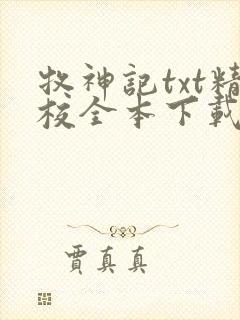 牧神記txt精
校全本下載
賈真真